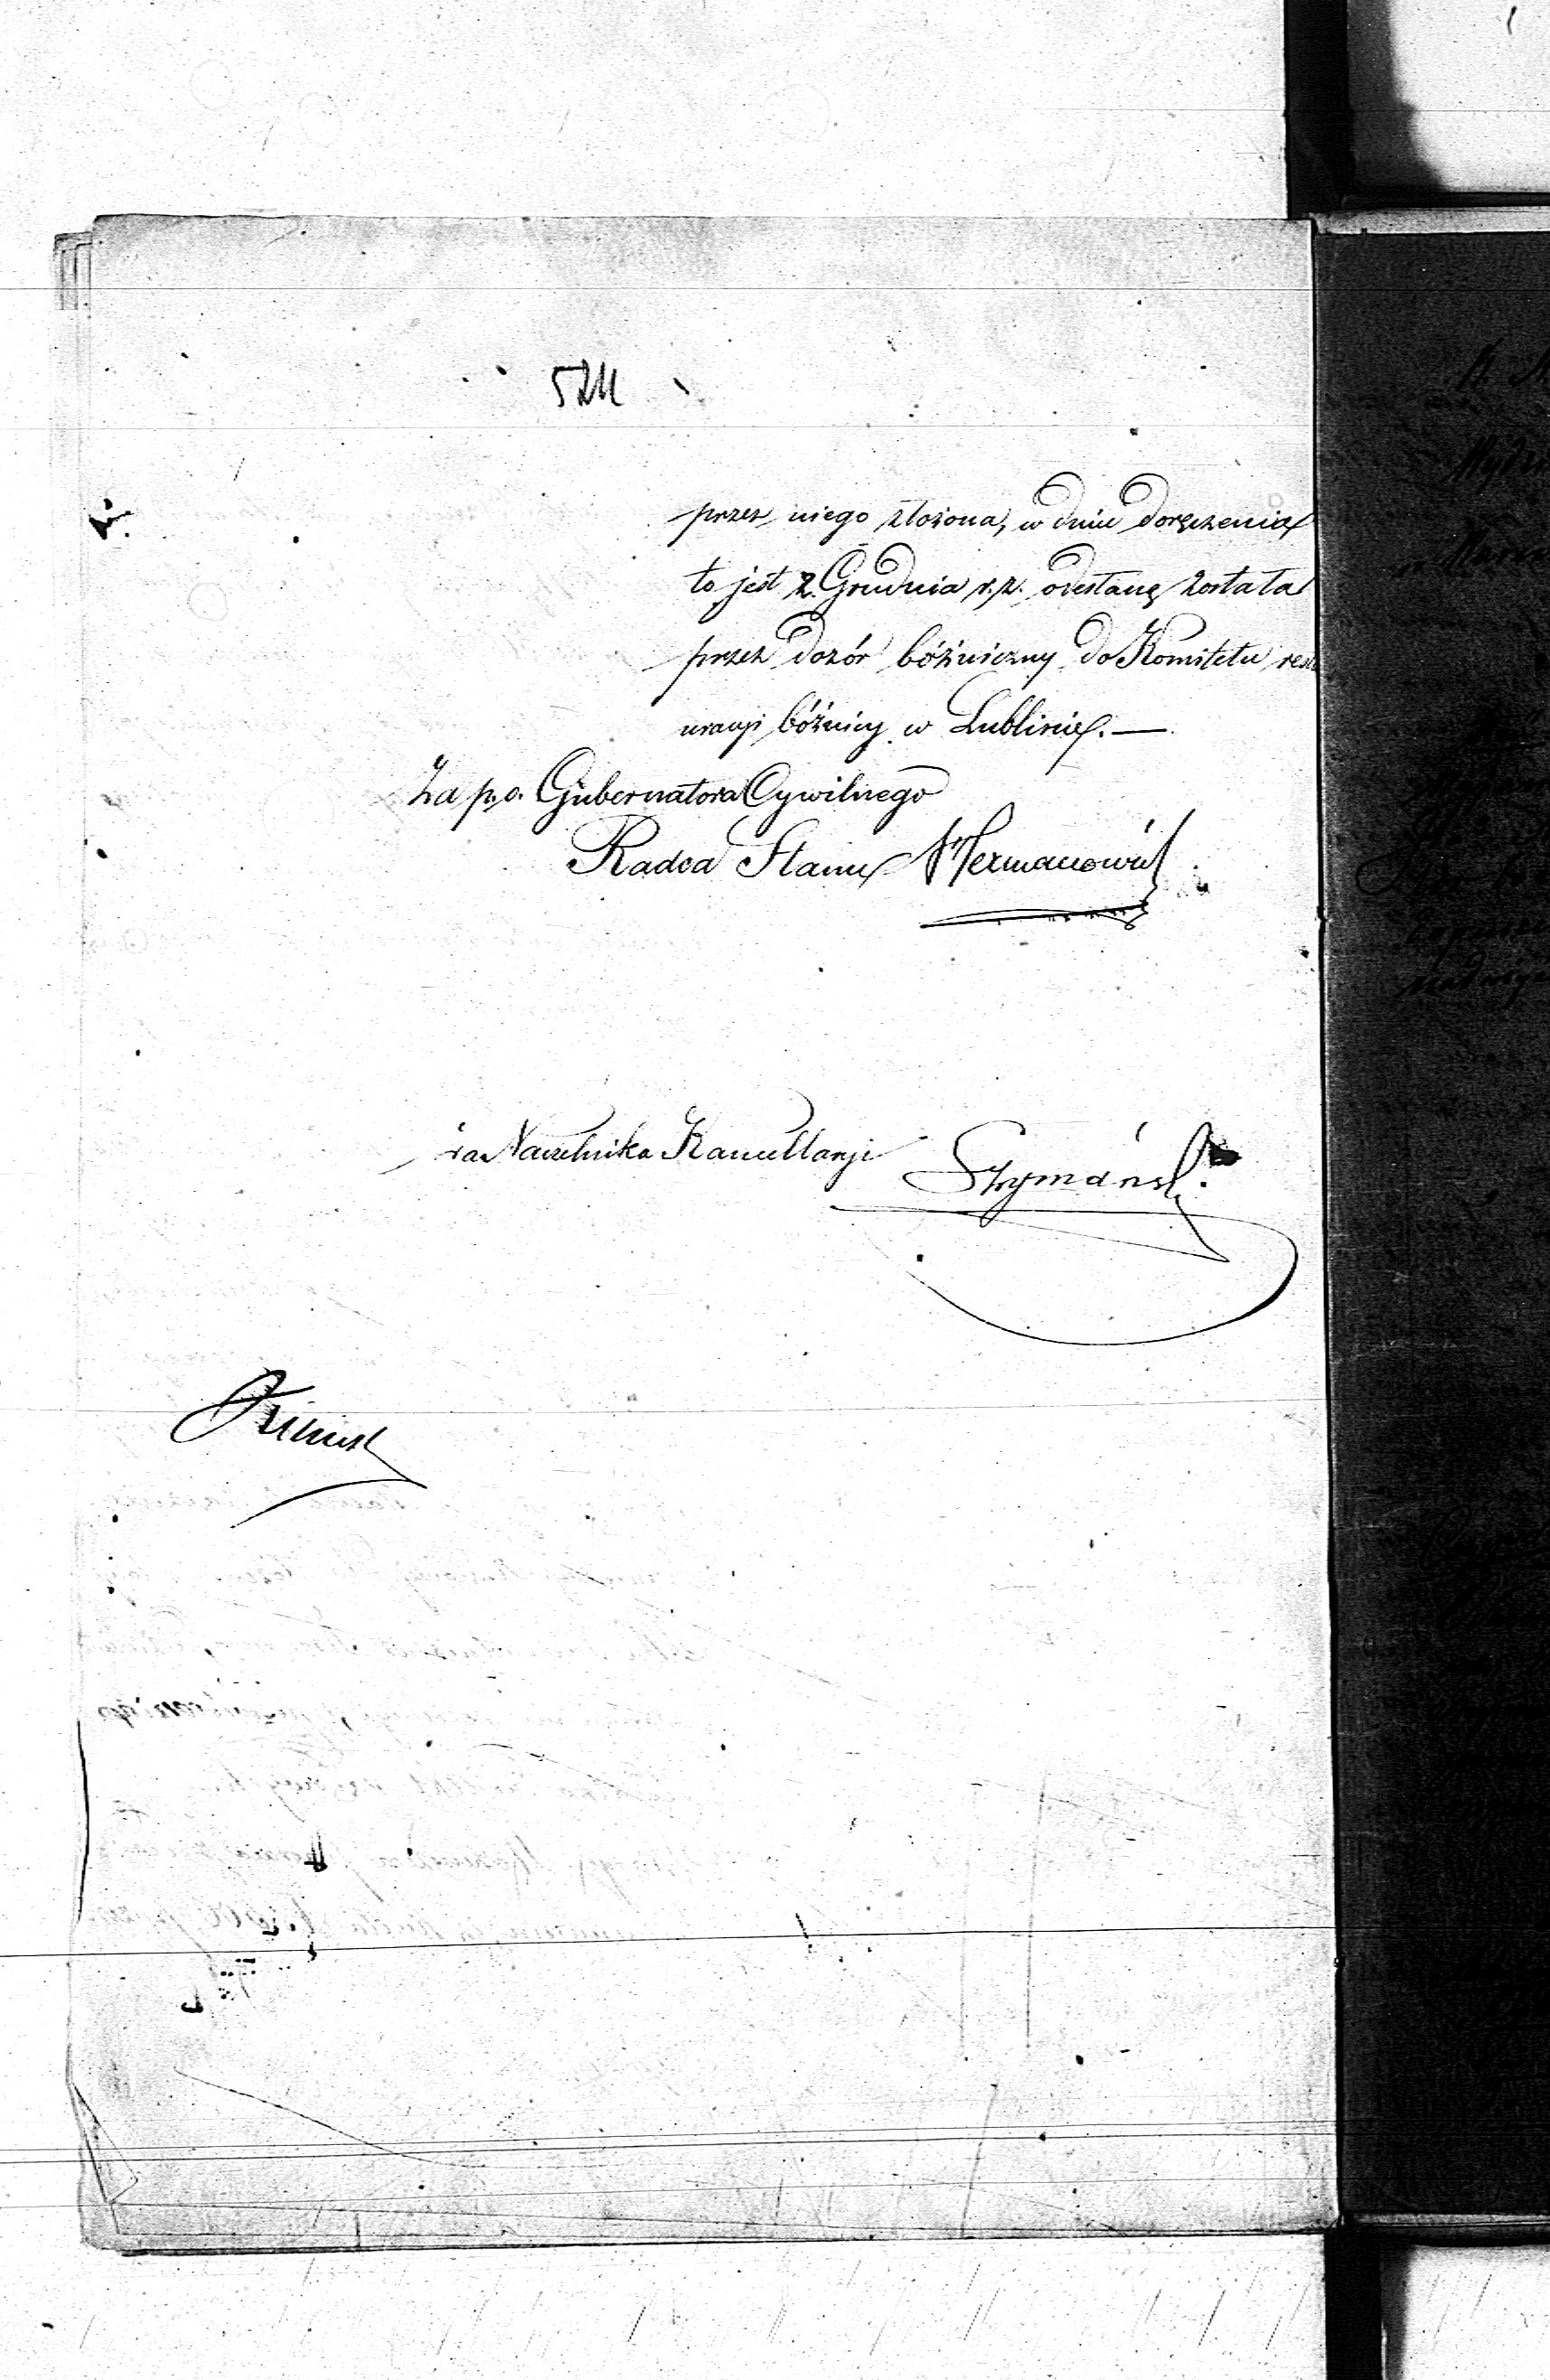 przez niego złożona, w dniu doręczenia
to jest 2. Grudnia r.z. odesłaną została
przez dozór bóźniczny do Komitetu rest
uracyi bóźnicy w Lublinie. —
Za p.o. Gubernatora Cywilnego
Radca Stanu Hermanowicz
za Naczelnika Kancellaryi Szymańsk